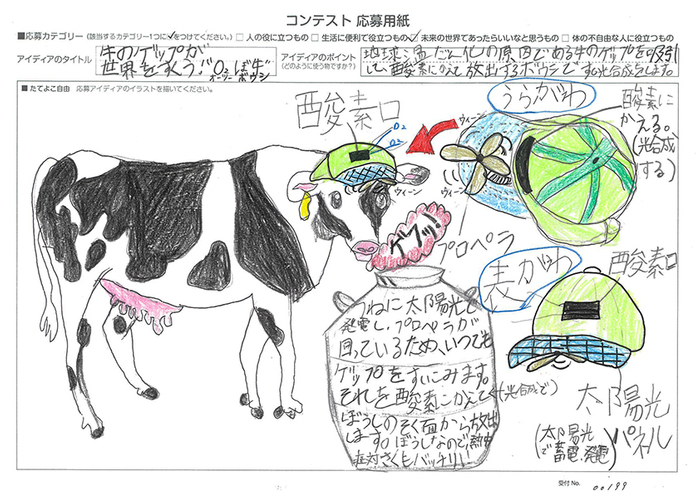 コンテスト 応募用紙
■応募カテゴリー (該当するカテゴリー1つに✓をつけてください。) □ 人の役に立つもの □ 生活に便利で役立つもの ☑ 未来の世界であったらいいなと思うもの □ 体の不自由な人に役立つもの
アイディアのタイトル
牛のゲップが
世界をすくう!O₂ぼ牛
オーツー ボウシ
アイディアのポイント
(どのように使う物ですか?)
地球温だん化の原因である牛のゲップを吸引
し、酸素にかえて放出するボウシです。光合成もします。
■たてよこ自由 応募アイディアのイラストを描いてください。
酸素口
O2
O2
ウィーン
ゲプッ!
プロペラ
うらがわ
ウィーン
ウィーン
酸素に
かえる。
(光合成
する)
表がわ
酸素口
太陽光
パネル
(太陽光
で蓄電、発電)
つねに太陽光で
発電し、プロペラが
回っているため、いつでも
ゲップをすいこみます。
それを酸素にかえて(光合成で)
ぼうしのそく面から放出
します。ぼうしなので熱中
症対さくもバッチリ!
受付 No. 00199